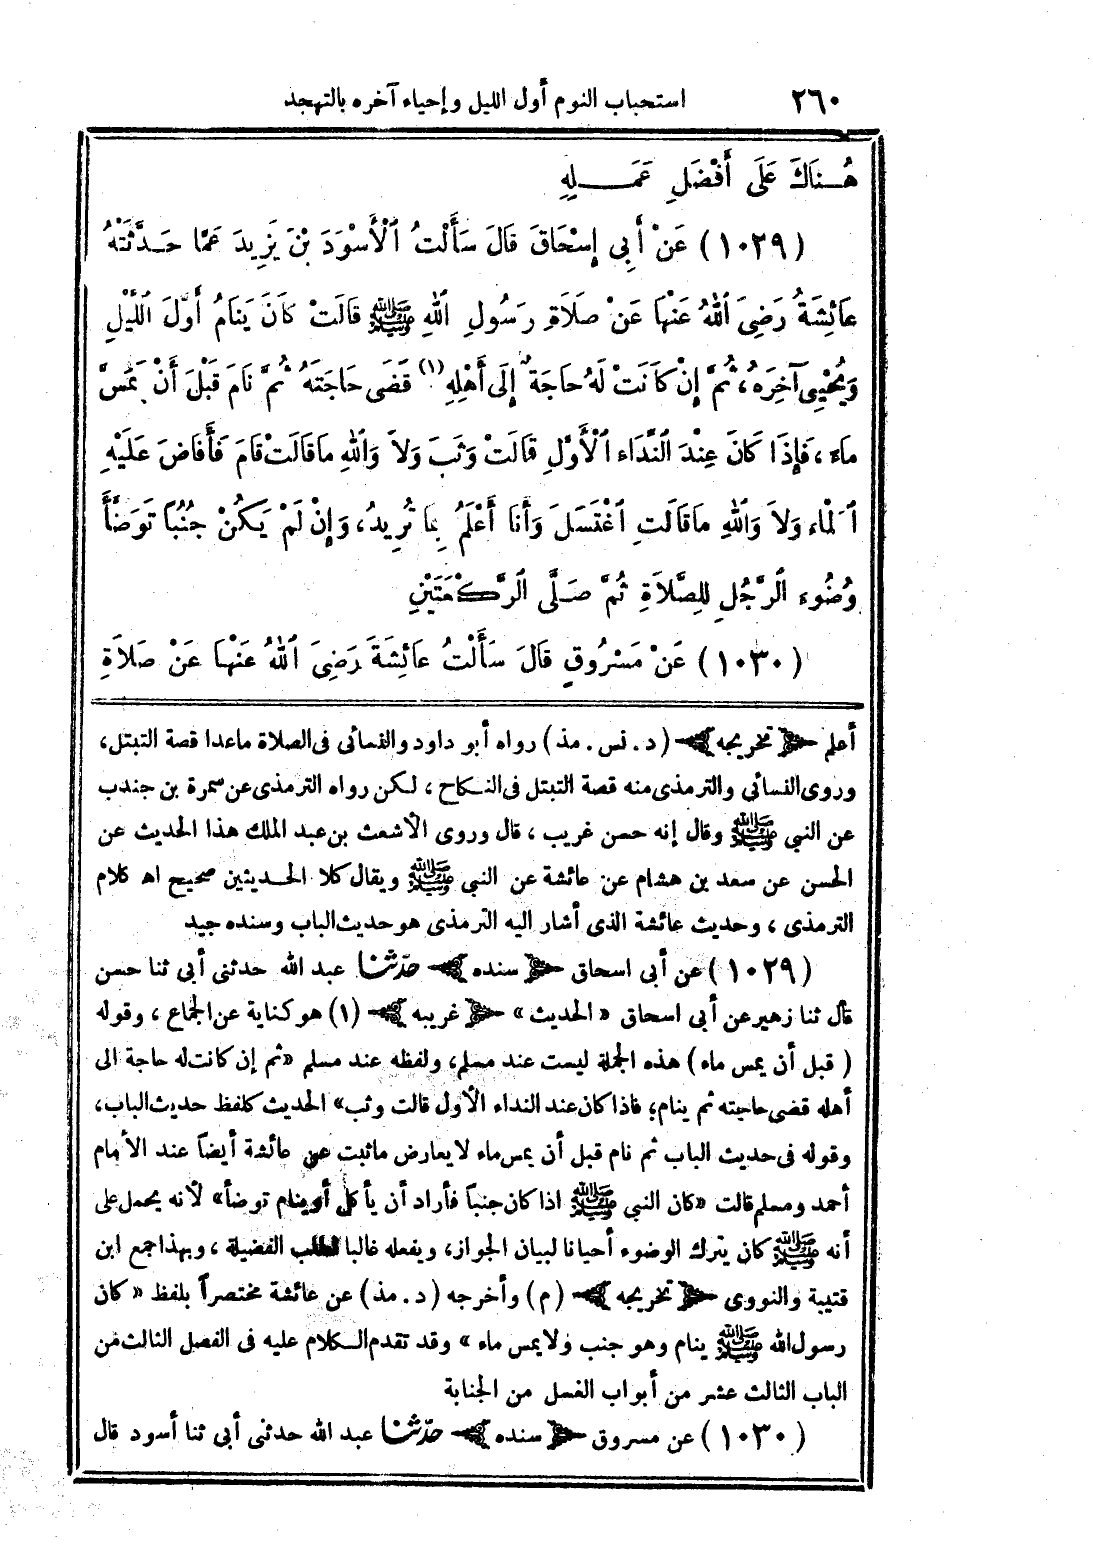 ٢٦٠ استحباب النوم أول الليل وإحياء آخره بالتهجد
هُـنَاكَ عَلَى أَفْضَلِ عَمَـــلِهِ
(١٠٢٩) عَنْ أَبِي إِسْحَاقَ قَالَ سَأَلْتُ الْأَسْوَدَ بْنَ يَزِيدَ عَمَّا حَـدَّثَتْهُ
عَائِشَةُ رَضِيَ اللهُ عَنْهَا عَنْ صَلَاةِ رَسُولِ اللهِ ﷺ قَالَتْ كَانَ يَنَامُ أَوَّلَ اللَّيْلِ
وَيُحْيِي آخِرَهُ، ثُمَّ إِنْ كَانَتْ لَهُ حَاجَةٌ إِلَى أَهْلِهِ (١) قَضَى حَاجَتَهُ ثُمَّ نَامَ قَبْلَ أَنْ يَمَسَّ
مَاءً، فَإِذَا كَانَ عِنْدَ النِّدَاءِ الْأَوَّلِ قَالَتْ وَثَبَ وَلاَ وَاللهِ مَا قَالَتْ قَامَ فَأَفَاضَ عَلَيْهِ
الْمَاءَ وَلاَ وَاللهِ مَا قَالَتِ اغْتَسَلَ وَأَنَا أَعْلَمُ بِمَا تُرِيدُ، وَإِنْ لَمْ يَكُنْ جُنُبًا تَوَضَّأَ
وُضُوءَ الرَّجُلِ لِلصَّلاَةِ ثُمَّ صَلَّى الرَّكْعَتَيْنِ
(١٠٣٠) عَنْ مَسْرُوقٍ قَالَ سَأَلْتُ عَائِشَةَ رَضِيَ اللهُ عَنْهَا عَنْ صَلَاةِ
أعلم ﴿تخريجه﴾ (د. نس. مذ) رواه أبو داود والنسائى فى الصلاة ماعدا قصة التبتل،
وروى النسائى والترمذى منه قصة التبتل فى النكاح، لكن رواه الترمذى عن سمرة بن جندب
عن النبي ﷺ وقال إنه حسن غريب، قال وروى الأشعث بن عبد الملك هذا الحديث عن
الحسن عن سعد بن هشام عن عائشة عن النبي ﷺ ويقال كلا الحديثين صحيح اه كلام
الترمذى، وحديث عائشة الذى أشار اليه الترمذى هو حديث الباب وسنده جيد
(١٠٢٩) عن أبى اسحاق ﴿سنده﴾ حدّثنا عبد الله حدثنى أبى ثنا حسن
قال ثنا زهير عن أبى اسحاق «الحديث» ﴿غريبه﴾ (١) هو كناية عن الجماع، وقوله
(قبل أن يمس ماء) هذه الجملة ليست عند مسلم، ولفظه عند مسلم «ثم إن كانت له حاجة الى
أهله قضى حاجته ثم ينام؛ فاذا كان عند النداء الأول قالت وثب» الحديث كلفظ حديث الباب،
وقوله فى حديث الباب ثم نام قبل أن يمس ماء لا يعارض ما ثبت عن عائشة أيضاً عند الأمام
أحمد ومسلم قالت «كان النبي ﷺ اذا كان جنباً فأراد أن يأكل أو ينام توضأ» لأنه يحمل على
أنه ﷺ كان يترك الوضوء أحيانا لبيان الجواز، ويفعله غالبا لطلب الفضيلة، وبهذا جمع ابن
قتيبة والنووى ﴿تخريجه﴾ (م) وأخرجه (د. مذ) عن عائشة مختصراً بلفظ «كان
رسول الله ﷺ ينام وهو جنب ولا يمس ماء» وقد تقدم الكلام عليه فى الفصل الثالث من
الباب الثالث عشر من أبواب الغسل من الجنابة
(١٠٣٠) عن مسروق ﴿سنده﴾ حدّثنا عبد الله حدثنى أبى ثنا أسود قال